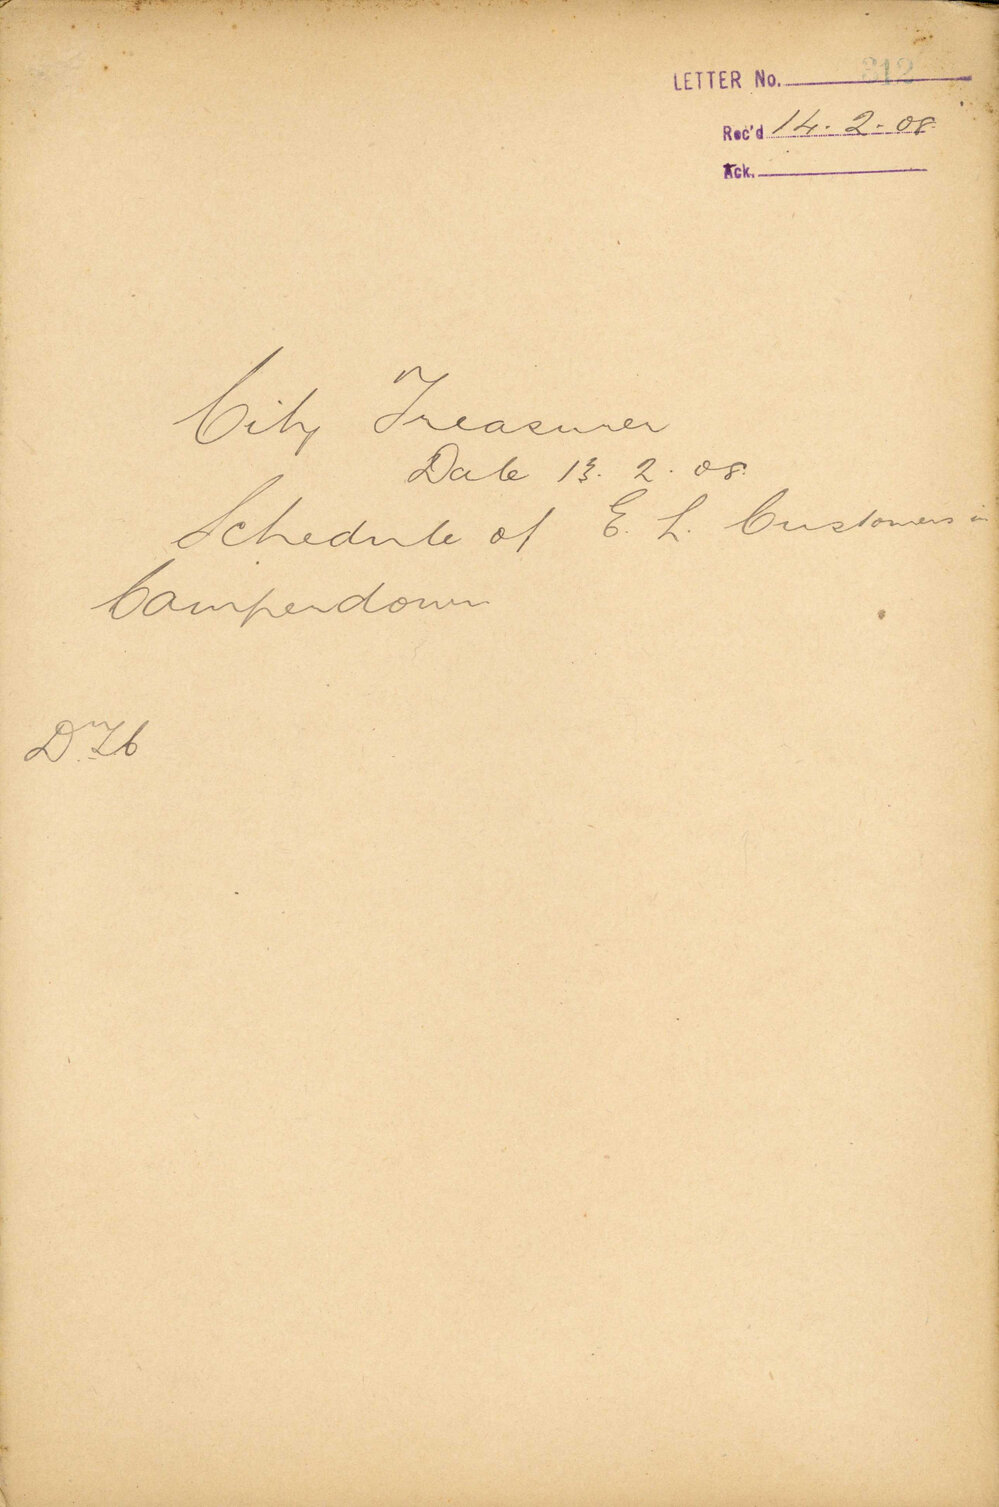 LETTER No. 312
Rec'd 14.2.08.
Ack.
City Treasurer
Date 13.2.08.
Schedule of E. L. Customers in
Camperdown